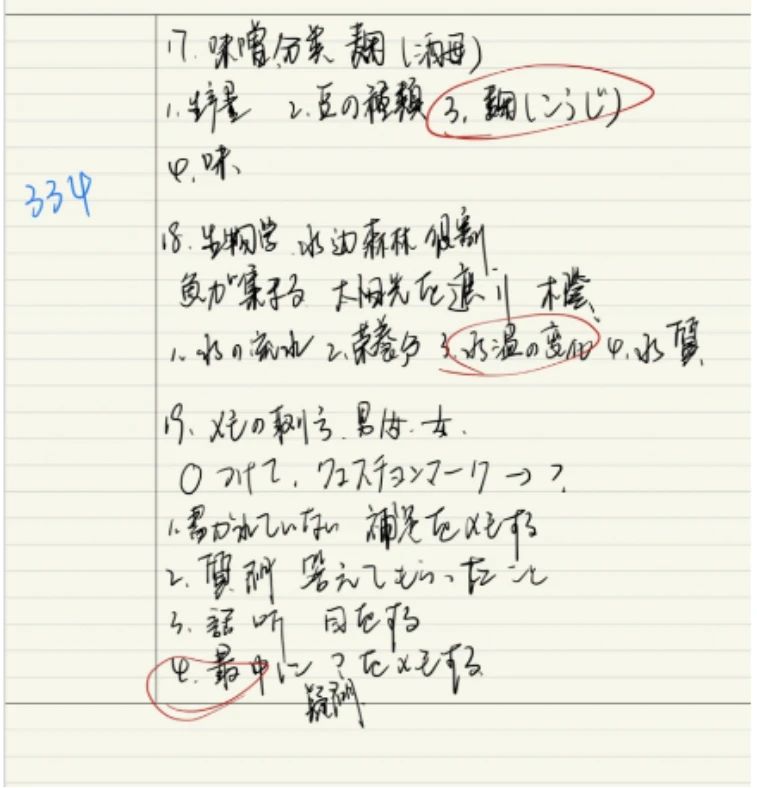 17. 味噌 分类 麹(酒母)
1. 2. 豆の種類 3. 麹(こうじ)
4. 味
334
18. 生物学 水边 森林 役割
魚が集まる 太阳光を遮り
1. 水の流れ 2. 栄養分 3. 水温の変化 4. 水質
19. メモの取り方. 男は. 女.
〇つけて. クエスチョンマーク→?
1. 書かれていない 補足をメモする
2. 質问 答えてもらったこと
3. 話 听 目をする
4. 最中に?をメモする
疑问